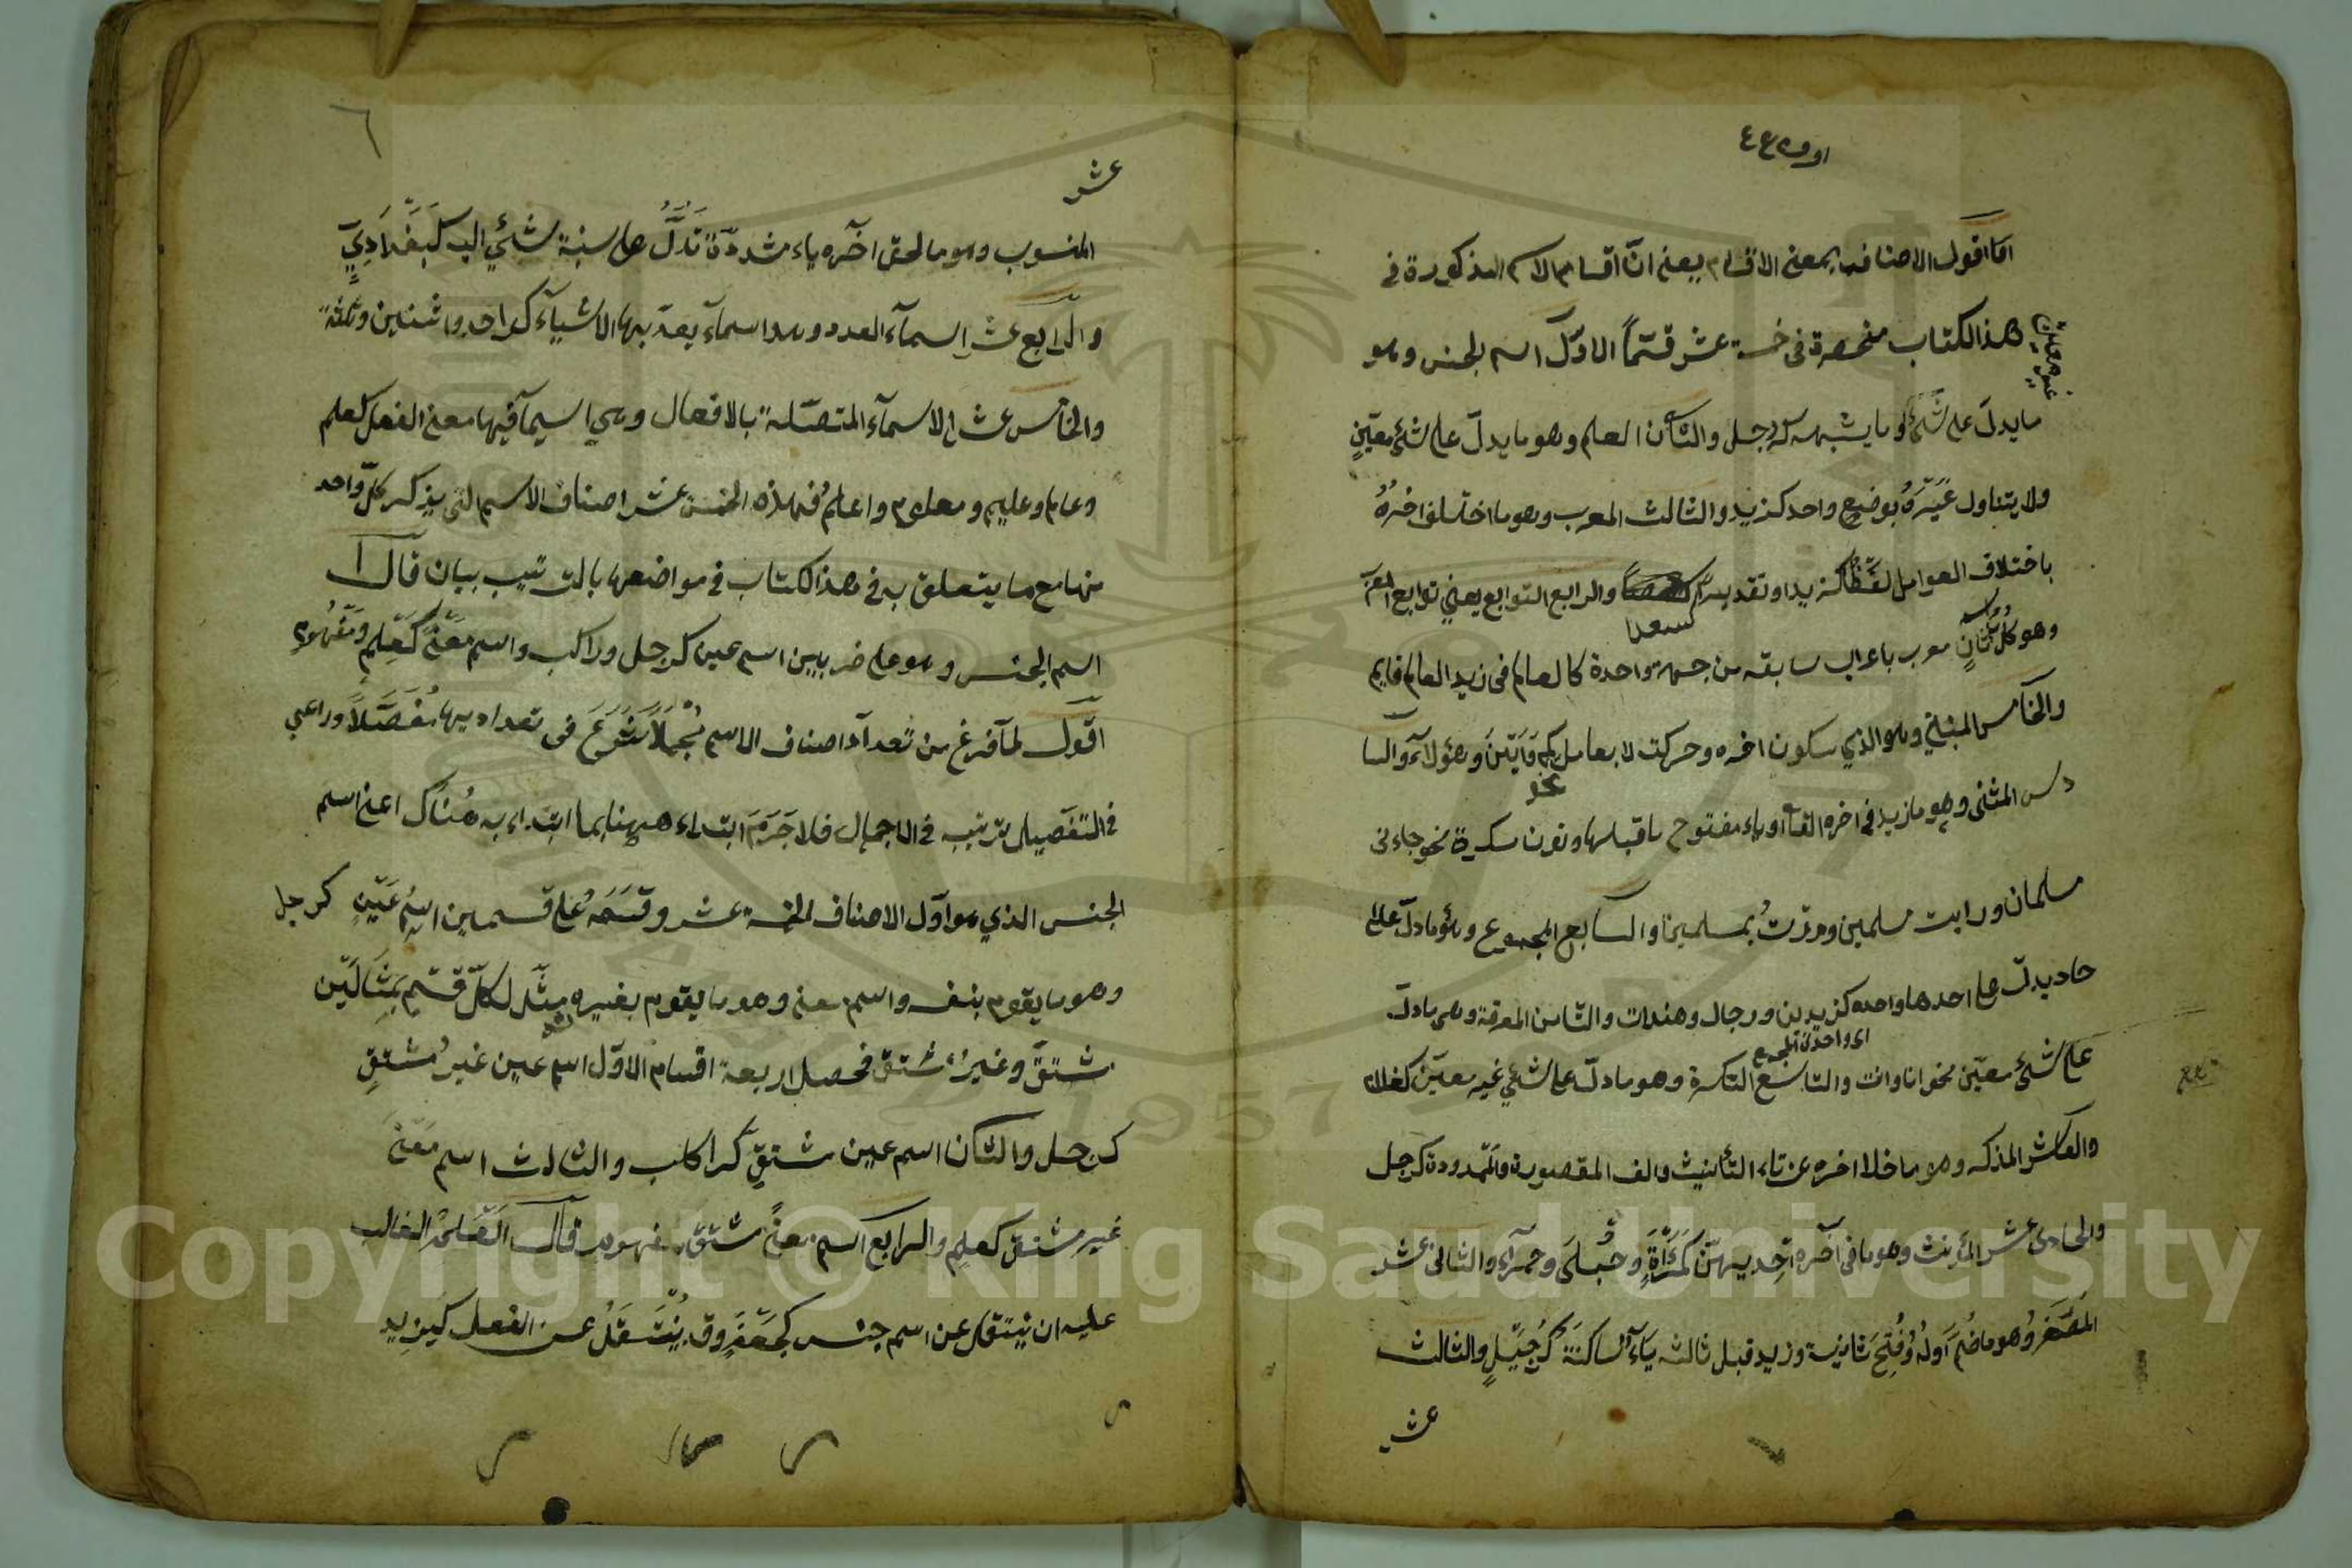 اما اقول الاصناف بمعنى الاقسام يعنى انّ اقسام الاسم المذكورة فى
هذا الكتاب منحصرة فى خمسة عشر قسمًا الاوّل اسم الجنس وهو
غير معين
ما يدلّ على شئ وما يشبهه كرجل والثانى العلم وهو ما يدلّ على شئ معيّنٍ
ولا يتناول غَيْرَهُ بوضعٍ واحد كزيد والثالث المعرب وهو ما اختلف اخرُهُ
باختلاف العوامل لفْظًا كزيد او تقديرًا والرابع التوابع يعنى توابع المعرب
كسعدا
وهو كلّ ثانٍ معرب باعراب سابقه من جهة واحدة كالعالم فى زيد العالم قايم
والخامس المبنى وهو الذي سكون اخره وحركته لا بعامل نحو كم وَاَيْنَ وهؤلاء والسا
دس المثنى وهو ما زيد فى اخره الف او ياء مفتوح ما قبلها ونون مكسورة نحو جاءنى
مسلمان ورايت مسلمين ومررتُ بمسلمين والسابع المجموع وهو ما دلّ على ا
حاد يدلّ على احدها واحده كزيدين ورجال وهندات والثامن المعرفة وهى ما دلّ
اى واحد الجمع
على شئ معيّن نحو انا وانت والتاسع النكرة وهو ما دلّ على شئ غير معيّن كغلام
والعاشر المذكر وهو ما خلا اخره عن تاء التأنيث والف المقصورة والممدودة كرجل
والحادى عشر المؤنث وهو ما فى آخره اِحديهنّ كَمَرْأَةٍ وحُبْلَى وحمرآء والثانى عشر
المصَغّر وهو ما ضُم اَوله وفُتِحَ ثانيه وزيد قبل ثالثه ياءٌ ساكنةٌ كَرُجَيْلٍ والثالث
عشر
٦
عشر
المنسوب وهو ما لحق اخره ياء مشددّة تَدُلُّ على نسبة شئ اليه كبَغْدَادِيٍّ
والرابع عشر اسمآء العدد وهو اسمآء يعدّ بها الاشيآء كواحد واثنين وثلثة
والخامس عشر الاسمآء المتصلة بالافعال وهي اسمآ فيها معنى الفعل كعلم
وعالم وعليم ومعلوم واعلم فهذه الخمسة عشر اصناف الاسم التى يذكر كلّ واحد
منها مع ما يتعلق به فى هذا الكتاب فى مواضعها بالترتيب بيان قال
اسم الجنس وهو على ضربين اسم عين كرجل وراكب واسم معنًى كعِلمٍ ومَفْهُومٍ
اقول لما فرغ من تعداد اصناف الاسم مُجْمَلًا شَرَعَ فى تعداديها مُفَصَّلًا وراعى
فى التفصيل ترتيب فى الاجمال فلا جَرَمَ ابتداء ههنا بما ابتداء به هُناك اعنى اسم
الجنس الذي هو اوّل الاصناف الخمسة عشر وقَسَّمَهُ على قسمين اسمُ عَيْنٍ كرجل
وهو ما يقوم بنفسه واسم معنى وهو ما يقوم بغيره مثّل لكلّ قسْم بمِثَالَيْن
مشتقّ وغيرُ مشتقّ فحصل اربعة اقسام الاوّل اسم عين غيرُ مُشتقٍ
كرجل والثانى اسم عين مشتقٍّ كراكب والثالث اسم مَعْنى
غير مشتقّ كعلم والرابع اسم معنًى مشتقّ كمفهوم قال العَلَمُ الغالب
عليه ان ينتقل عن اسم جنس كجَعْفَرٍ وقد يُنْتَقَلُ عن الفعل كيَزِيد